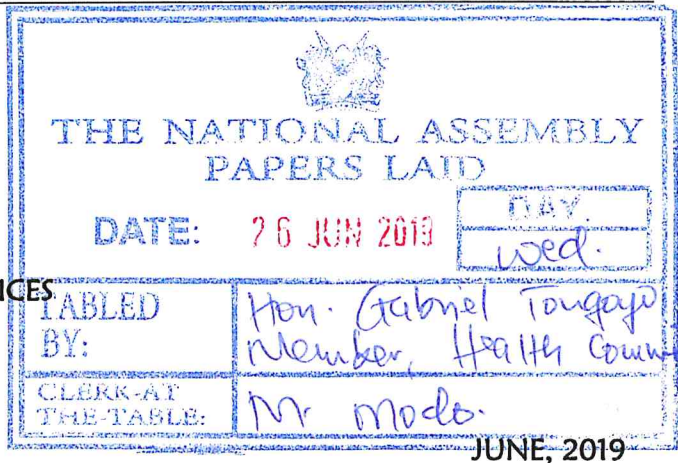 THE NATIONAL ASSEMBLY
PAPERS LAID
DATE: 26 JUN 2019
DAY.
Wed.
ICES
TABLED BY:
Hon. Gabriel Tongoyo
Member, Health Comm
CLERK-AT THE-TABLE:
M. Modo.
JUNE, 2019